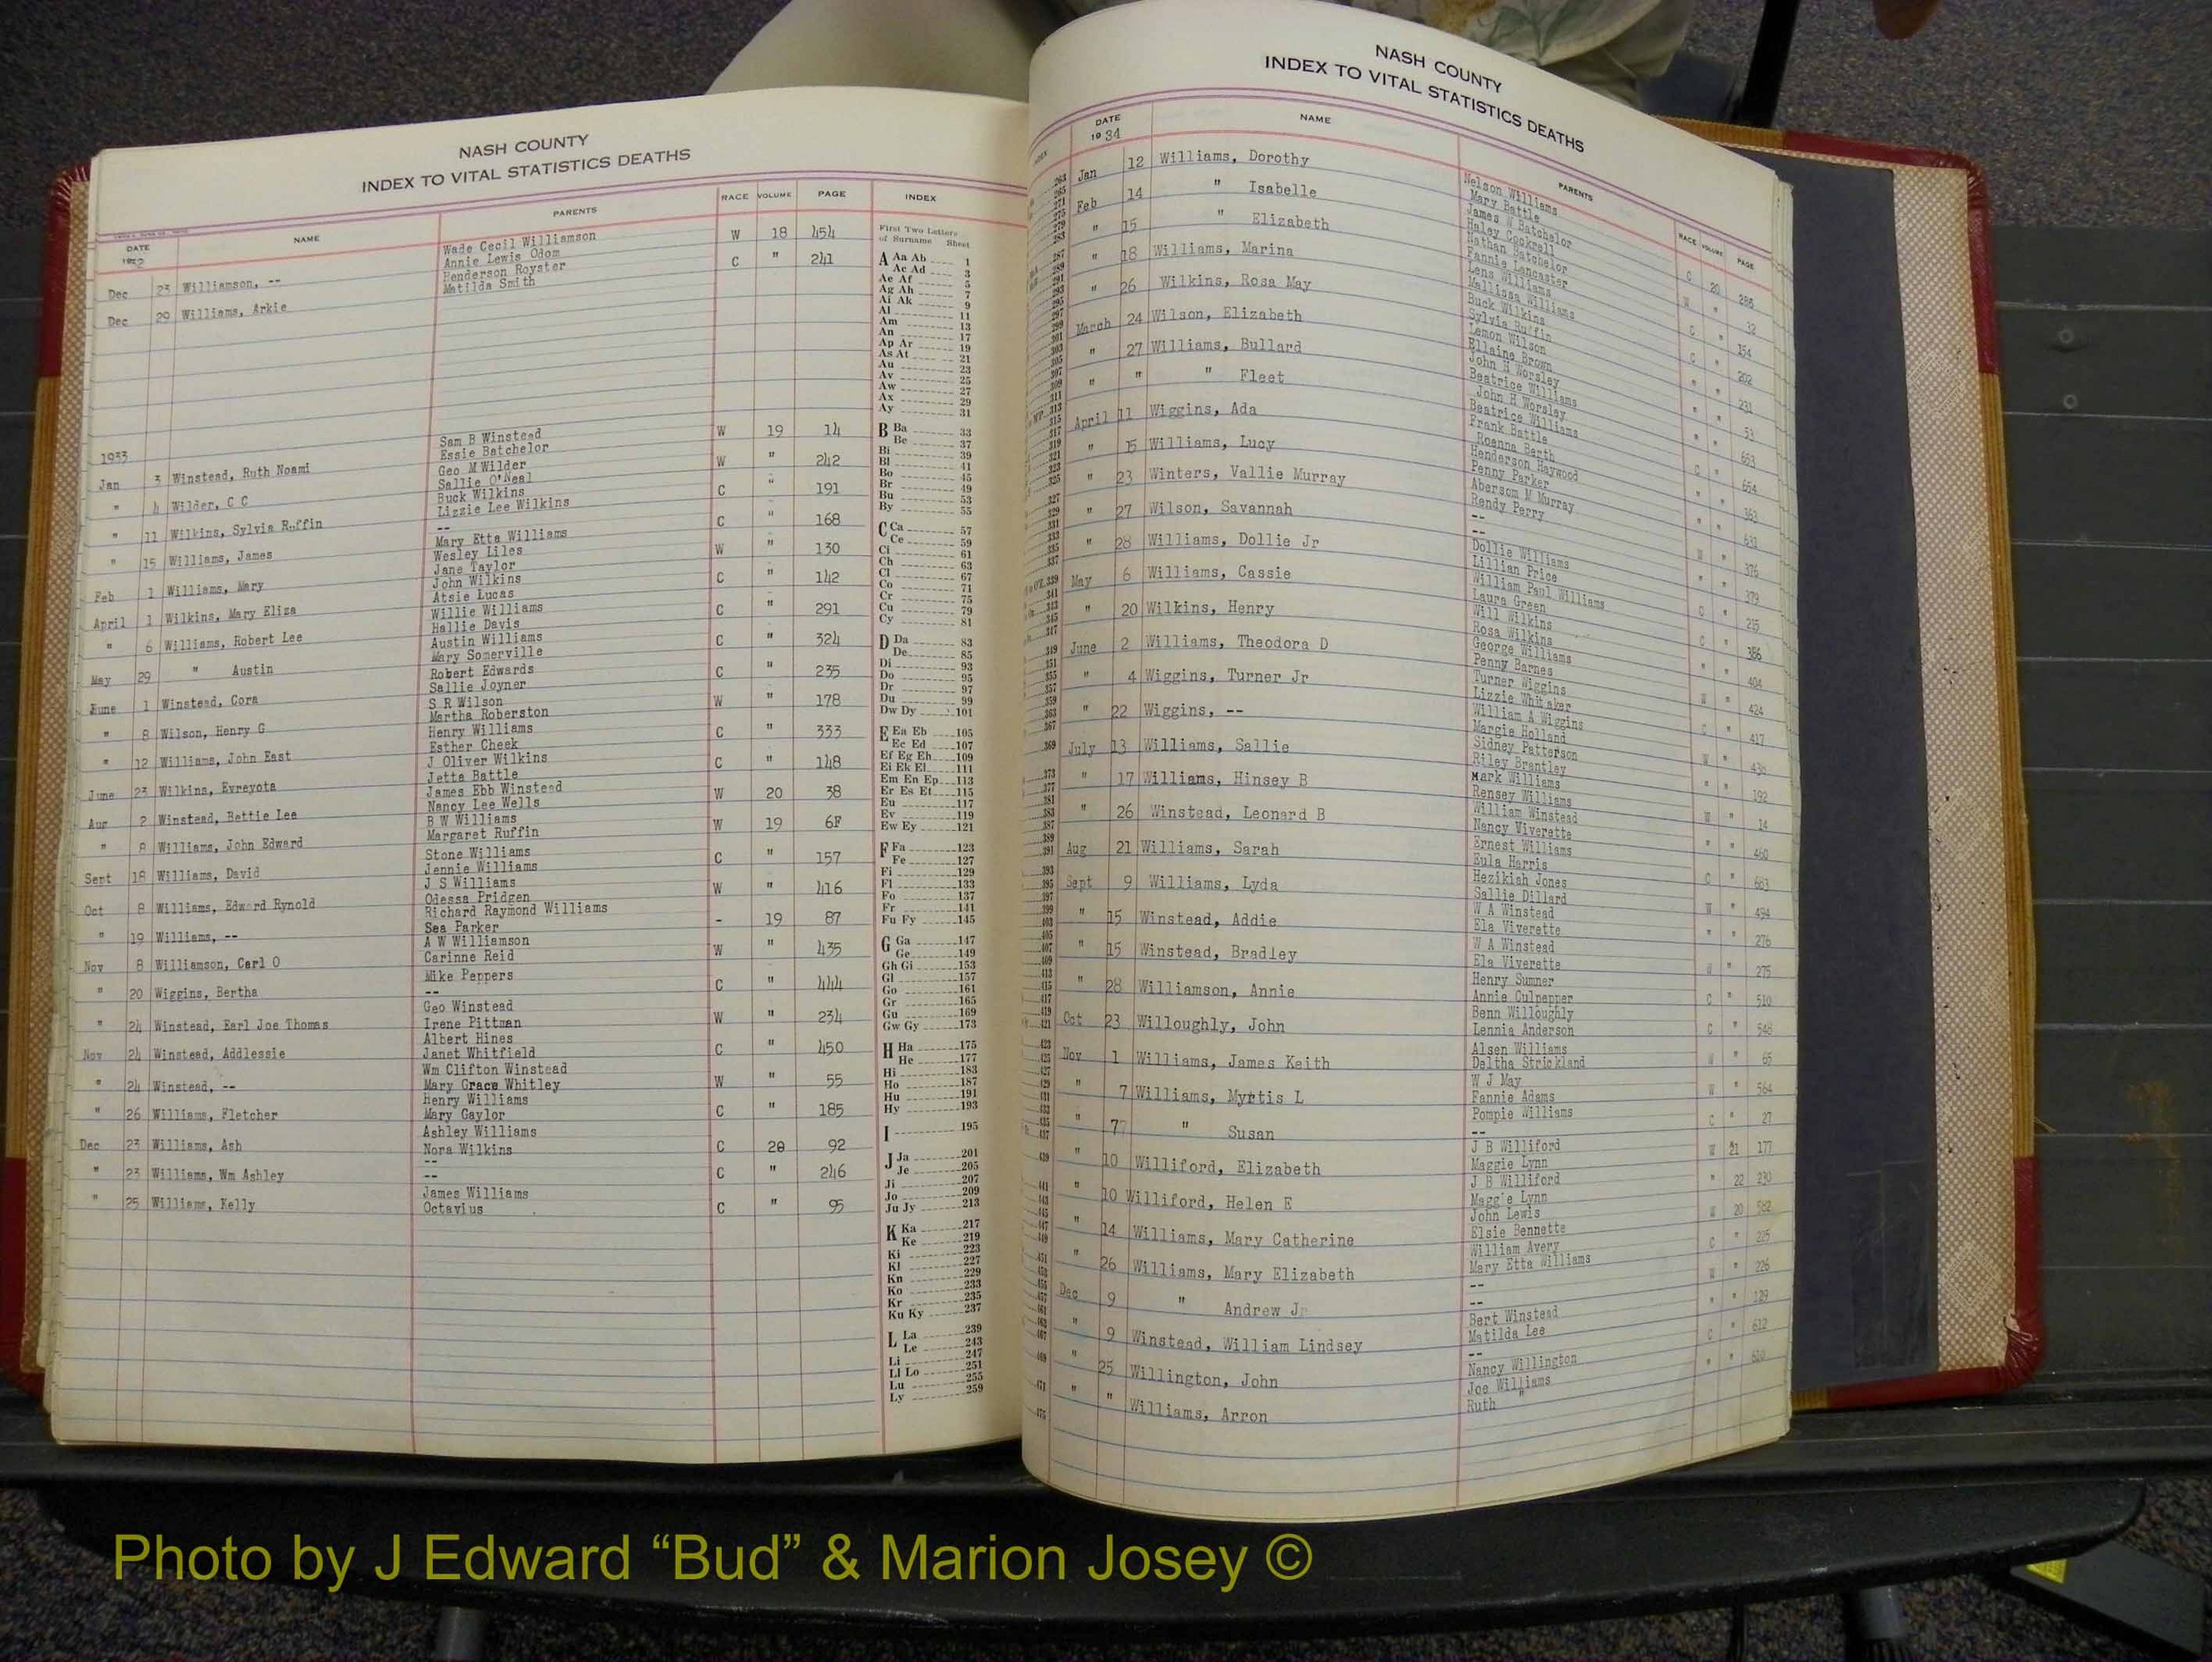 NASH COUNTY
INDEX TO VITAL STATISTICS DEATHS
DATE NAME PARENTS RACE VOLUME PAGE INDEX
Wade Cecil Williamson W 18 454
Dec 23 Williamson, -- Annie Lewis Odom
Henderson Royster C " 241
Dec 29 Williams, Arkie Matilda Smith
1933
Sam B Winstead W 19 14
Jan 3 Winstead, Ruth Noami Essie Batchelor
Geo M Wilder W " 242
" 4 Wilder, C C Sallie O'Neal
Buck Wilkins C " 191
" 11 Wilkins, Sylvia Ruffin Lizzie Lee Wilkins
-- C " 168
" 15 Williams, James Mary Etta Williams
Wesley Liles W " 130
Feb 1 Williams, Mary Jane Taylor
John Wilkins C " 142
April 1 Wilkins, Mary Eliza Atsie Lucas
Willie Williams C " 291
" 6 Williams, Robert Lee Hallie Davis
Austin Williams C " 324
May 29 " Austin Mary Somerville
Robert Edwards C " 235
June 1 Winstead, Cora Sallie Joyner
S R Wilson W " 178
" 8 Wilson, Henry G Martha Roberston
Henry Williams C " 333
" 12 Williams, John East Esther Cheek
J Oliver Wilkins C " 148
June 23 Wilkins, Evreyota Jetta Battle
James Ebb Winstead W 20 38
Aug 2 Winstead, Bettie Lee Nancy Lee Wells
B W Williams W 19 6F
" 8 Williams, John Edward Margaret Ruffin
Stone Williams C " 157
Sept 18 Williams, David Jennie Williams
J S Williams W " 416
Oct 8 Williams, Edward Rynold Odessa Pridgen
Richard Raymond Williams - 19 87
" 19 Williams, -- Sea Parker
A W Williamson W " 435
Nov 8 Williamson, Carl O Carinne Reid
Mike Peppers C " 444
" 20 Wiggins, Bertha --
Geo Winstead W " 234
" 24 Winstead, Earl Joe Thomas Irene Pittman
Albert Hines C " 450
Nov 24 Winstead, Addlessie Janet Whitfield
Wm Clifton Winstead W " 55
" 24 Winstead, -- Mary Grace Whitley
Henry Williams C " 185
" 26 Williams, Fletcher Mary Gaylor
Ashley Williams C 20 92
Dec 23 Williams, Ash Nora Wilkins
-- C " 246
" 23 Williams, Wm Ashley --
James Williams C " 95
" 25 Williams, Kelly Octavius
First Two Letters
of Surname Sheet
A Aa Ab 1
Ac Ad 3
Ae Af 5
Ag Ah 7
Ai Ak 9
Al 11
Am 13
An 17
Ap Ar 19
As At 21
Au 23
Av 25
Aw 27
Ax 29
Ay 31
B Ba 33
Be 37
Bi 39
Bl 41
Bo 45
Br 49
Bu 53
By 55
C Ca 57
Ce 59
Ci 61
Ch 63
Cl 67
Co 71
Cr 75
Cu 79
Cy 81
D Da 83
De 85
Di 93
Do 95
Dr 97
Du 99
Dw Dy 101
E Ea Eb 105
Ec Ed 107
Ef Eg Eh 109
Ei Ek El 111
Em En Ep 113
Er Es Et 115
Eu 117
Ev 119
Ew Ey 121
F Fa 123
Fe 127
Fi 129
Fl 133
Fo 137
Fr 141
Fu Fy 145
G Ga 147
Ge 149
Gh Gi 153
Gl 157
Go 161
Gr 165
Gu 169
Gw Gy 173
H Ha 175
He 177
Hi 183
Ho 187
Hu 191
Hy 193
I 195
J Ja 201
Je 205
Ji 207
Jo 209
Ju Jy 213
K Ka 217
Ke 219
Ki 223
Kl 227
Kn 229
Ko 233
Kr 235
Ku Ky 237
L La 239
Le 243
Li 247
Ll Lo 251
Lu 255
Ly 259
NASH COUNTY
INDEX TO VITAL STATISTICS DEATHS
DATE NAME PARENTS RACE VOLUME PAGE
1934
Jan 12 Williams, Dorothy Nelson Williams C 20 286
Mary Battle
Feb 14 " Isabelle James W Batchelor W " 32
Haley Cockrell
" 15 " Elizabeth Nathan Batchelor C " 154
Fannie Lancaster
" 18 Williams, Marina Lens Williams C " 202
Mallissa Williams
" 26 Wilkins, Rosa May Buck Wilkins " " 231
Sylvia Ruffin
March 24 Wilson, Elizabeth Lemon Wilson " " 53
Ellaine Brown
" 27 Williams, Bullard John H Worsley " " 653
Beatrice Williams
" " " Fleet John H Worsley C " 654
Beatrice Williams
April 11 Wiggins, Ada Frank Battle " " 363
Roanna Berth
" 15 Williams, Lucy Henderson Haywood " " 631
Penny Parker
" 23 Winters, Vallie Murray Abersom M Murray W " 376
Rendy Perry
" 27 Wilson, Savannah -- " " 379
--
" 28 Williams, Dollie Jr Dollie Williams C " 215
Lillian Price
May 6 Williams, Cassie William Paul Williams C " 386
Laura Green
" 20 Wilkins, Henry Will Wilkins " " 404
Rosa Wilkins
June 2 Williams, Theodora D George Williams W " 424
Penny Barnes
" 4 Wiggins, Turner Jr Turner Wiggins C " 417
Lizzie Whitaker
" 22 Wiggins, -- William A Wiggins W " 438
Margie Holland
July 13 Williams, Sallie Sidney Patterson " " 192
Riley Brantley
" 17 Williams, Hinsey B Mark Williams W " 14
Rensey Williams
" 26 Winstead, Leonard B William Winstead " " 460
Nancy Viverette
Aug 21 Williams, Sarah Ernest Williams C " 663
Eula Harris
Sept 9 Williams, Lyda Hezikiah Jones W " 494
Sallie Dillard
" 15 Winstead, Addie W A Winstead " " 276
Ela Viverette
" 15 Winstead, Bradley W A Winstead W " 275
Ela Viverette
" 28 Williamson, Annie Henry Sumner C " 510
Annie Culpepper
Oct 23 Willoughly, John Benn Willoughly C " 548
Lennia Anderson
Nov 1 Williams, James Keith Alsen Williams W " 65
Deltha Strickland
" 7 Williams, Myrtis L W J May W " 564
Fannie Adams
" 7 " Susan Pompie Williams C " 27
--
" 10 Williford, Elizabeth J B Williford W 21 177
Maggie Lynn
" 10 Williford, Helen E J B Williford " 22 230
Maggie Lynn
" 14 Williams, Mary Catherine John Lewis W 20 582
Elsie Bennette
" 26 Williams, Mary Elizabeth William Avery C " 225
Mary Etta Williams
Dec 9 " Andrew Jr -- W " 226
--
" 9 Winstead, William Lindsey Bert Winstead " " 129
Matilda Lee
" 25 Willington, John -- C " 612
Nancy Willington
" " Williams, Arron Joe Williams " "
Ruth "
Photo by J Edward “Bud” & Marion Josey ©